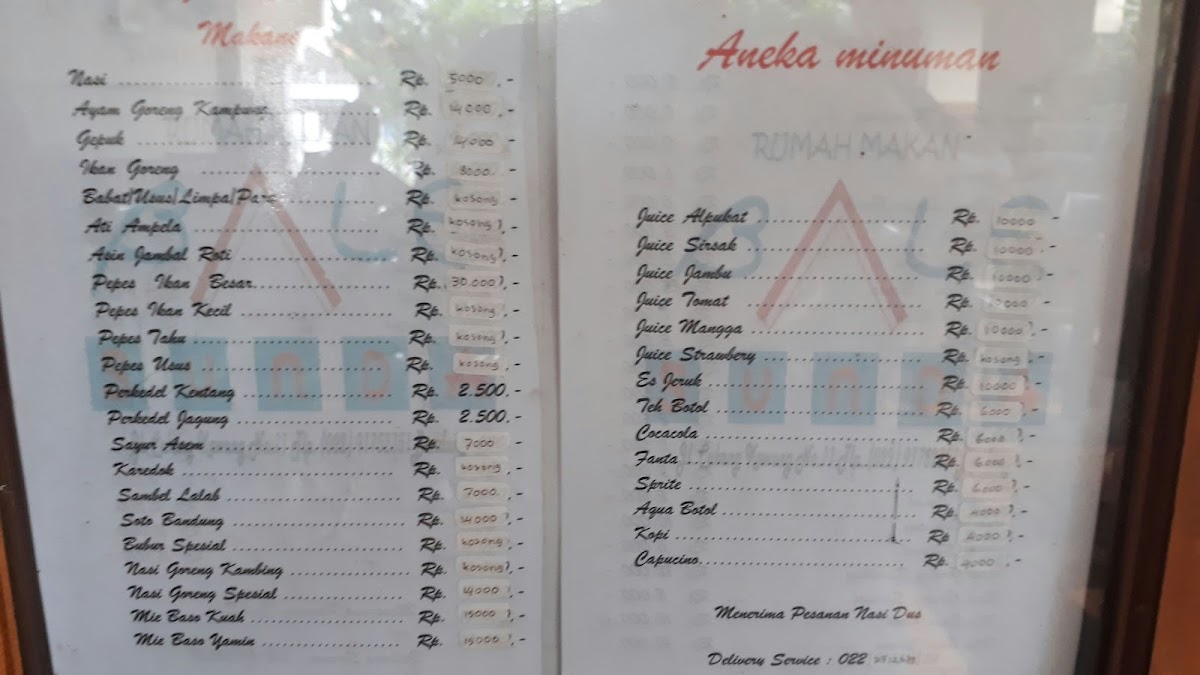 Makan
Nasi Rp. 5000,-
Ayam Goreng Kampung Rp. 14000,-
Gepuk Rp. 14000
Ikan Goreng Rp. 8000.-
Babat/Usus/Limpa/Paru Rp. kosong,-
Ati Ampela Rp. kosong,-
Asin Jambal Roti Rp. kosong,-
Pepes Ikan Besar Rp. 30.000,-
Pepes Ikan Kecil Rp. kosong,-
Pepes Tahu Rp. kosong,-
Pepes Usus Rp. kosong,-
Perkedel Kentang Rp. 2.500.-
Perkedel Jagung Rp. 2.500.-
Sayur Asem Rp. 7000 -
Karedok Rp. kosong,-
Sambel Lalab Rp. 7000.-
Soto Bandung Rp. 14000,-
Bubur Spesial Rp. kosong,-
Nasi Goreng Kambing Rp. kosong,-
Nasi Goreng Spesial Rp. 14000,-
Mie Baso Kuah Rp. 15000,-
Mie Baso Yamin Rp. 15000,-
Aneka minuman
RUMAH MAKAN
Juice Alpukat Rp. 10000 -
Juice Sirsak Rp. 10000,-
Juice Jambu Rp. 10000,-
Juice Tomat Rp. 10000,-
Juice Mangga Rp. 10000,-
Juice Strawbery Rp. kosong,-
Es Jeruk Rp. 10000,-
Teh Botol Rp. 6000,-
Cocacola Rp. 6000,-
Fanta Rp. 6.000,-
Sprite Rp. 6000,-
Aqua Botol Rp. 4000,-
Kopi Rp. 4000,-
Capucino Rp. 4000,-
Menerima Pesanan Nasi Dus
Delivery Service : 022